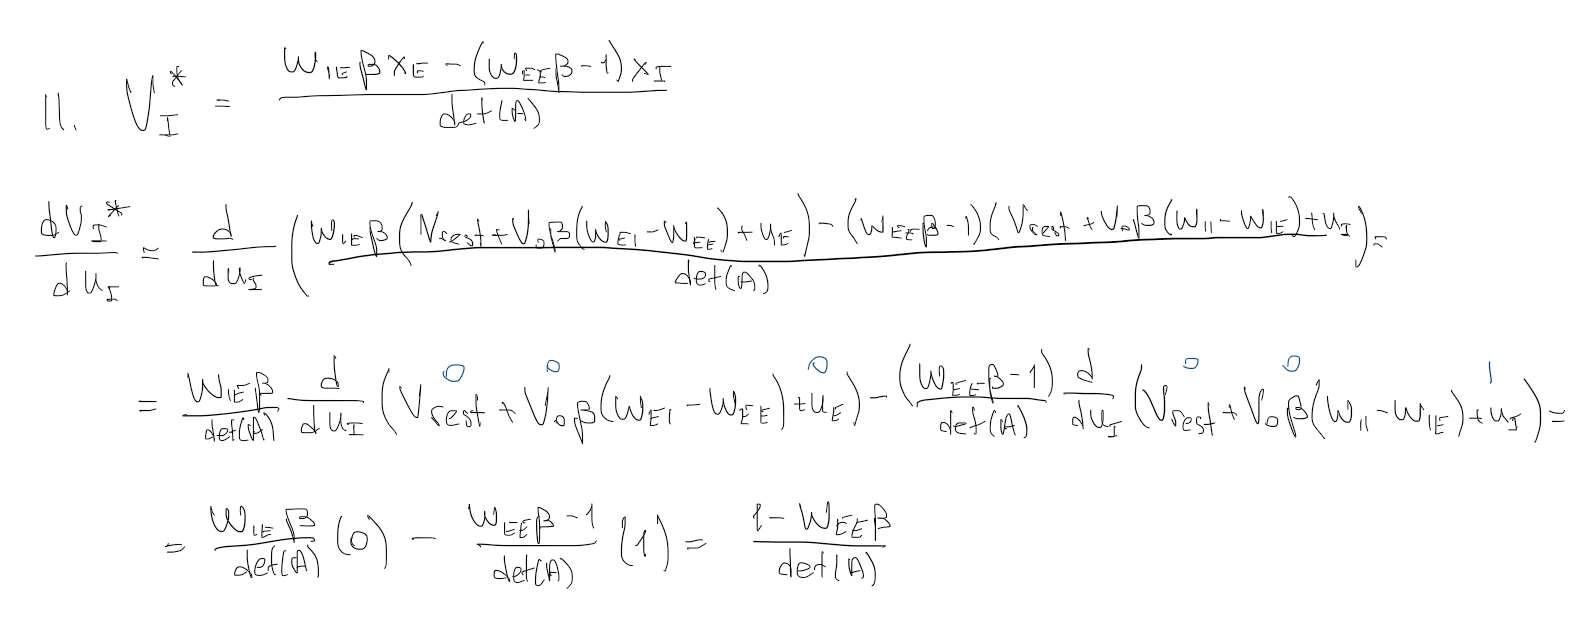 II. V_I^* = \frac{W_{IE} β x_E - (W_{EE} β - 1) x_I}{det(A)}
\frac{dV_I^*}{du_I} = \frac{d}{du_I} ( \frac{W_{IE} β (V_{rest} + V_0 β (W_{EI} - W_{EE}) + u_E) - (W_{EE} β - 1)(V_{rest} + V_0 β (W_{II} - W_{IE}) + u_I}{det(A)} ) =
0 0 0 0 0 1
= \frac{W_{IE} β}{det(A)} \frac{d}{du_I} (V_{rest} + V_0 β (W_{EI} - W_{EE}) + u_E) - \frac{(W_{EE} β - 1)}{det(A)} \frac{d}{du_I} (V_{rest} + V_0 β (W_{II} - W_{IE}) + u_I) =
= \frac{W_{IE} β}{det(A)} (0) - \frac{W_{EE} β - 1}{det(A)} (1) = \frac{1 - W_{EE} β}{det(A)}